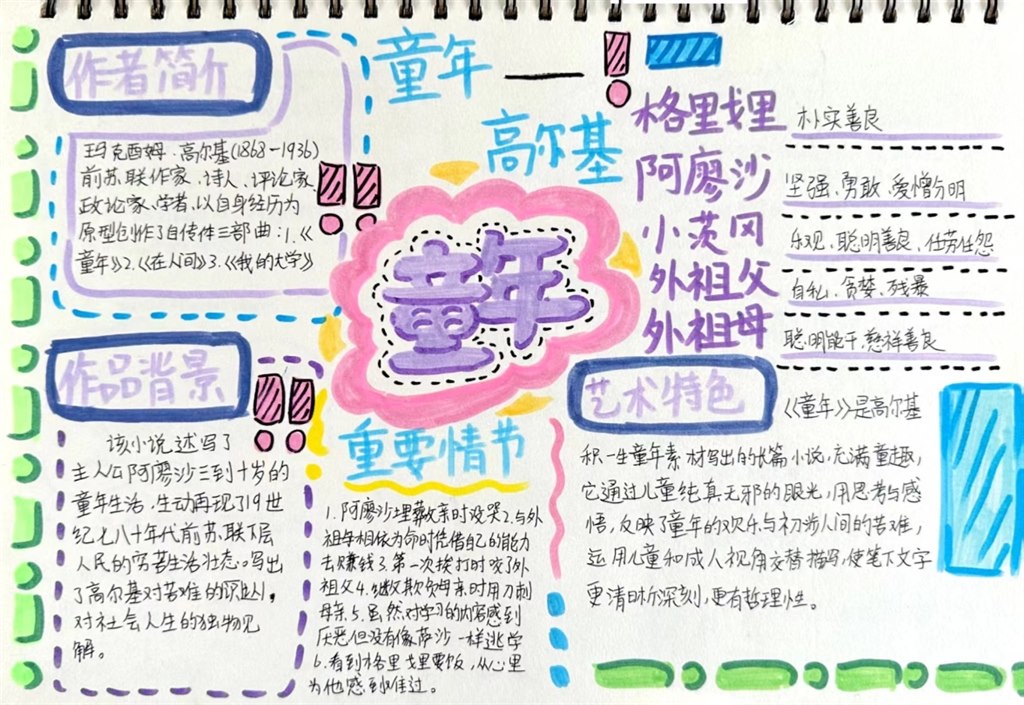 童年——
高尔基
作者简介
玛克西姆·高尔基(1868-1936)
前苏联作家、诗人、评论家、
政论家、学者,以自身经历为
原型创作了自传体三部曲:1.《
童年》2.《在人间》3.《我的大学》
格里戈里 朴实善良
阿廖沙 坚强、勇敢、爱憎分明
小茨冈 乐观、聪明善良、任劳任怨
外祖父 自私、贪婪、残暴
外祖母 聪明能干、慈祥善良
童年
作品背景
该小说述写了
主人公阿廖沙三到十岁的
童年生活,生动再现了19世
纪七八十年代前苏联下层
人民的穷苦生活状态。写出
了高尔基对苦难的
对社会人生的独物见
解。
重要情节
1.阿廖沙埋葬父亲时没哭2.与外
祖母相依为命时凭借自己的能力
去赚钱3.第一次挨打时咬了外
祖父4.继父欺负母亲时用刀刺
母亲5.虽然对学习的内容感到
厌恶但没有像萨沙一样逃学
6.看到格里戈里要饭,从心里
为他感到难过。
艺术特色
《童年》是高尔基
积一生童年素材写出的长篇小说,充满童趣,
它通过儿童纯真无邪的眼光,用思考与感
悟,反映了童年的欢乐与初涉人间的苦难,
运用儿童和成人视角交替描写,使笔下文字
更清晰深刻,更有哲理性。